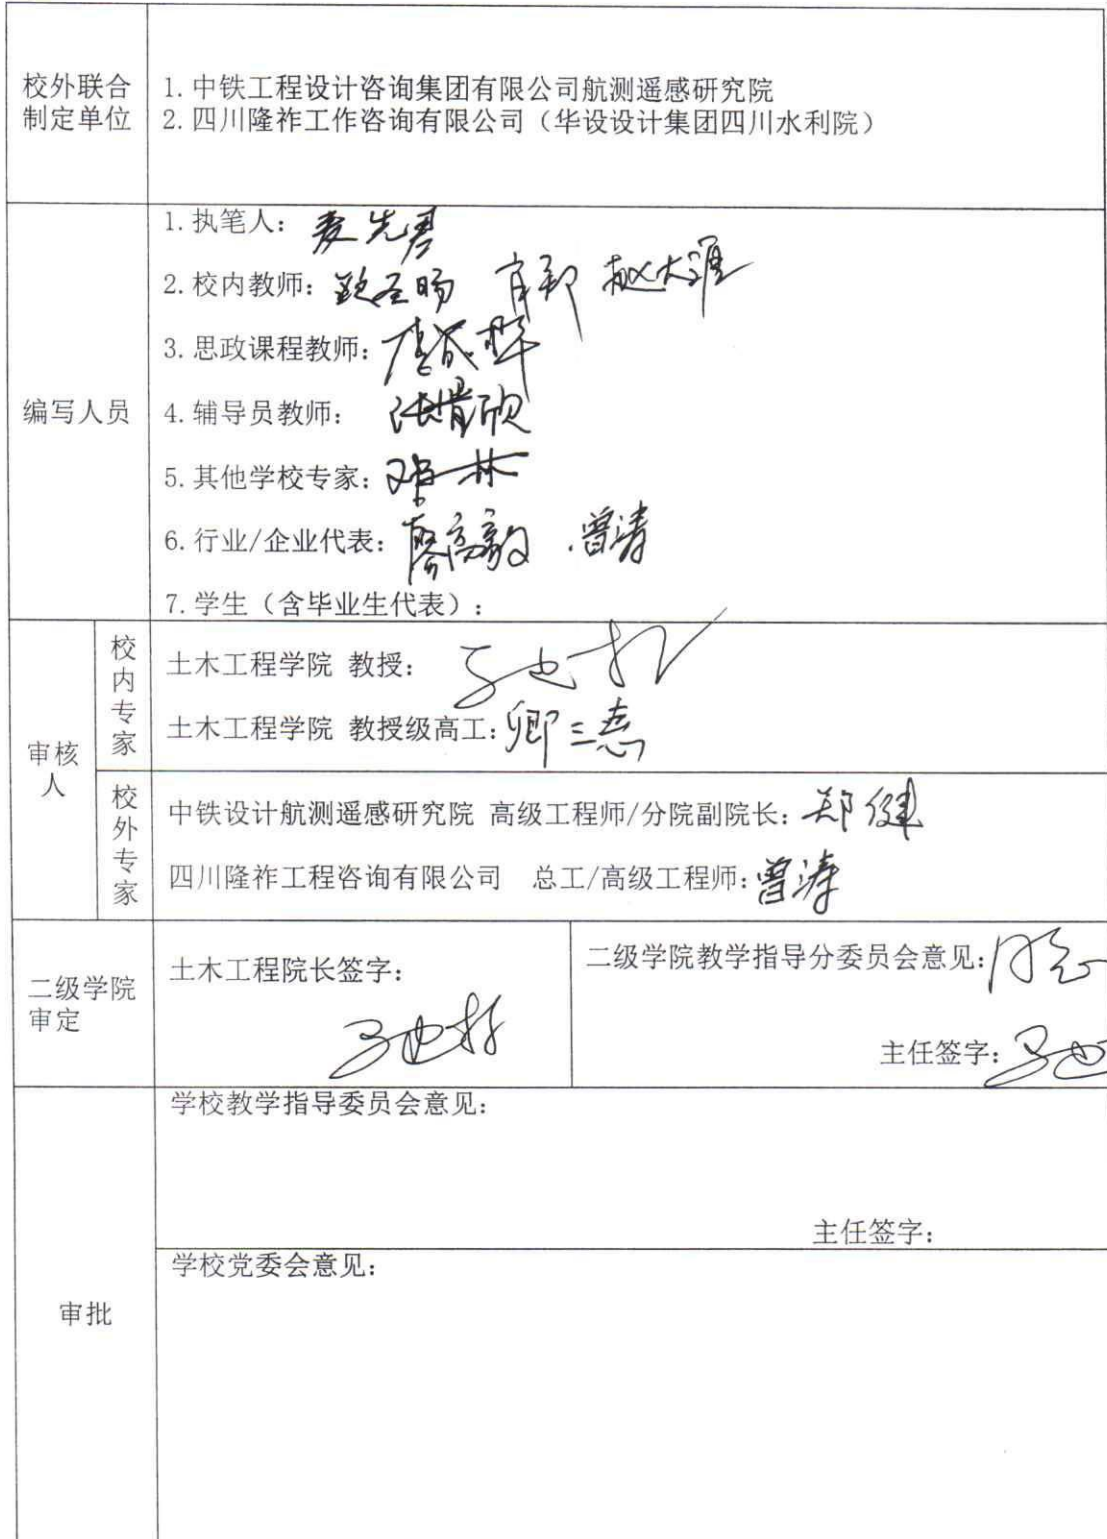 校外联合
制定单位
1.中铁工程设计咨询集团有限公司航测遥感研究院
2.四川隆祚工作咨询有限公司（华设设计集团四川水利院）
编写人员
1.执笔人：麦先君
2.校内教师：
3.思政课程教师：
4.辅导员教师：
5.其他学校专家：
6.行业/企业代表：廖高毅 曾涛
7.学生（含毕业生代表）：
审核
人
校内专家
土木工程学院 教授：
土木工程学院 教授级高工：卿三惠
校外专家
中铁设计航测遥感研究院 高级工程师/分院副院长：郑健
四川隆祚工程咨询有限公司 总工/高级工程师：曾涛
二级学院
审定
土木工程院长签字：
二级学院教学指导分委员会意见：同意
主任签字：
审批
学校教学指导委员会意见：
主任签字：
学校党委会意见：